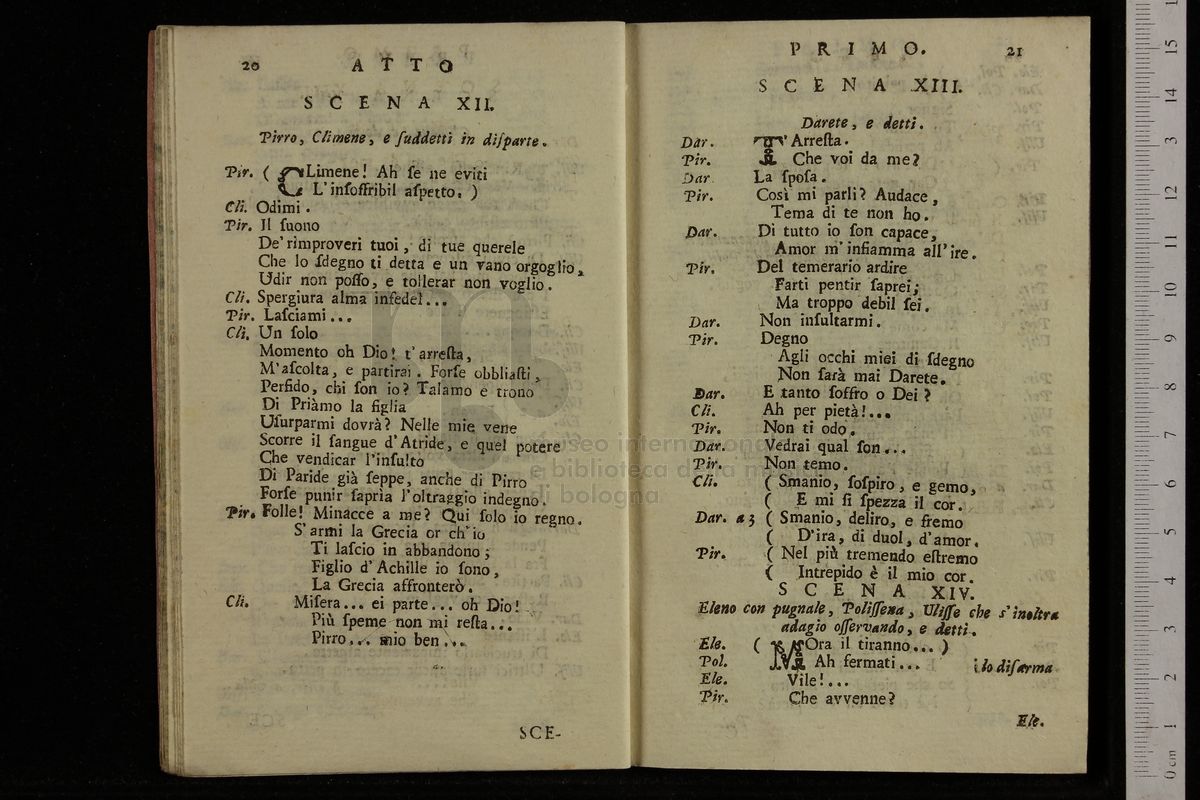 20 ATTO
SCENA XII.
Pirro, Climene, e ſuddetti in diſparte.
Pir. ( CLimene! Ah ſe ne eviti
L'inſoffribil aſpetto. )
Cli. Odimi.
Pir. Il ſuono
De' rimproveri tuoi, di tue querele
Che lo ſdegno ti detta e un vano orgoglio,
Udir non poſſo, e tollerar non voglio.
Cli. Spergiura alma infedel...
Pir. Laſciami...
Cli. Un ſolo
Momento oh Dio! t'arreſta,
M'aſcolta, e partirai. Forſe obbliaſti,
Perfido, chi ſon io? Talamo e trono
Di Priàmo la figlia
Uſurparmi dovrà? Nelle mie vene
Scorre il ſangue d'Atride, e quel potere
Che vendicar l'inſulto
Di Paride già ſeppe, anche di Pirro
Forſe punir ſapria l'oltraggio indegno.
Pir. Folle! Minacce a me? Qui ſolo io regno.
S'armi la Grecia or ch'io
Ti laſcio in abbandono;
Figlio d'Achille io ſono,
La Grecia affronterò.
Cli. Miſera... ei parte... oh Dio!
Più ſpeme non mi reſta...
Pirro... mio ben...
SCE-
PRIMO. 21
SCENA XIII.
Darete, e detti.
Dar. T'Arreſta.
Pir. Che voi da me?
Dar. La ſpoſa.
Pir. Così mi parli? Audace,
Tema di te non ho.
Dar. Di tutto io ſon capace,
Amor m'infiamma all'ire.
Pir. Del temerario ardire
Farti pentir ſaprei;
Ma troppo debil ſei.
Dar. Non inſultarmi.
Pir. Degno
Agli occhi miei di ſdegno
Non ſarà mai Darete.
Dar. E tanto ſoffro o Dei?
Cli. Ah per pietà!...
Pir. Non ti odo.
Dar. Vedrai qual ſon...
Pir. Non temo.
Cli. ( Smanio, ſoſpiro, e gemo,
( E mi ſi ſpezza il cor.
Dar. a 3 ( Smanio, deliro, e fremo
( D'ira, di duol, d'amor.
Pir. ( Nel più tremendo eſtremo
( Intrepido è il mio cor.
SCENA XIV.
Eleno con pugnale, Poliſſena, Uliſſe che s'inoltra
adagio oſſervando, e detti.
Ele. ( MOra il tiranno... )
Pol. Ah fermati... lo diſarma
Ele. Vile!...
Pir. Che avvenne?
Ele.
museo internazionale
e biblioteca della musica
di bologna
0 cm 1 2 3 4 5 6 7 8 9 10 11 12 13 14 15